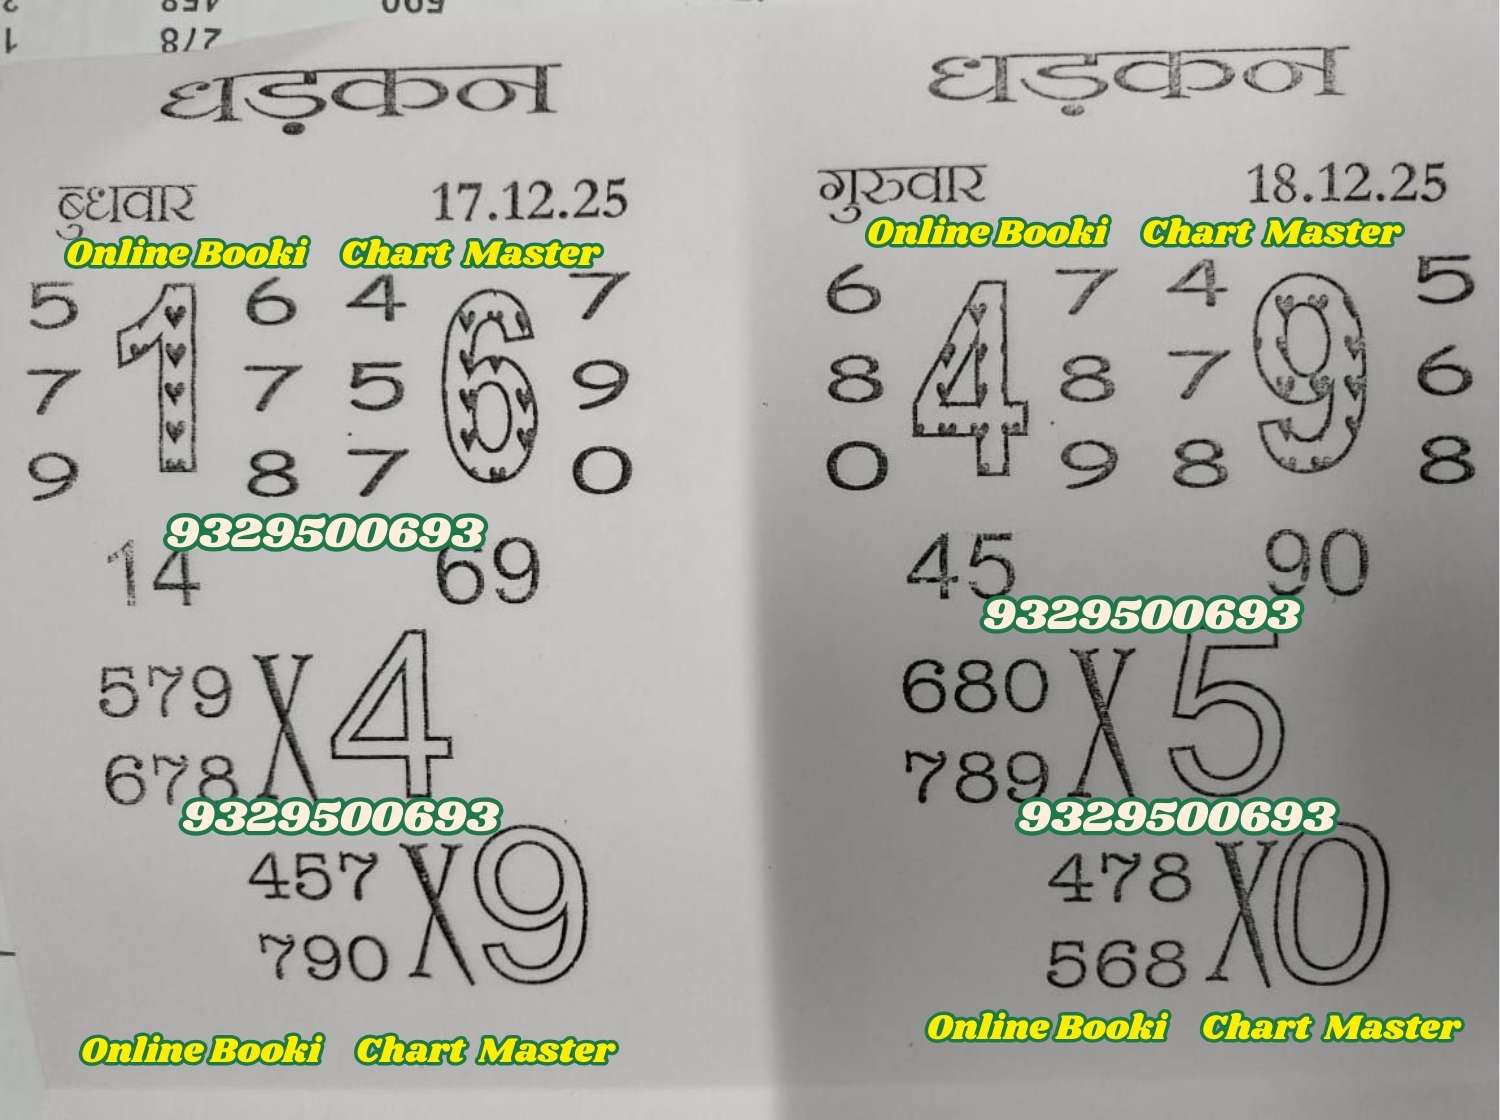 278
धड़कन
बुधवार 17.12.25
Online Booki Chart Master
5 1 6 4 6 7
7 7 5 9
9 8 7 0
9329500693
14 69
579 X 4
678
9329500693
457 X 9
790
Online Booki Chart Master
धड़कन
गुरुवार 18.12.25
Online Booki Chart Master
6 4 7 4 9 5
8 8 7 6
0 9 8 8
45 90
9329500693
680 X 5
789
9329500693
478 X 0
568
Online Booki Chart Master